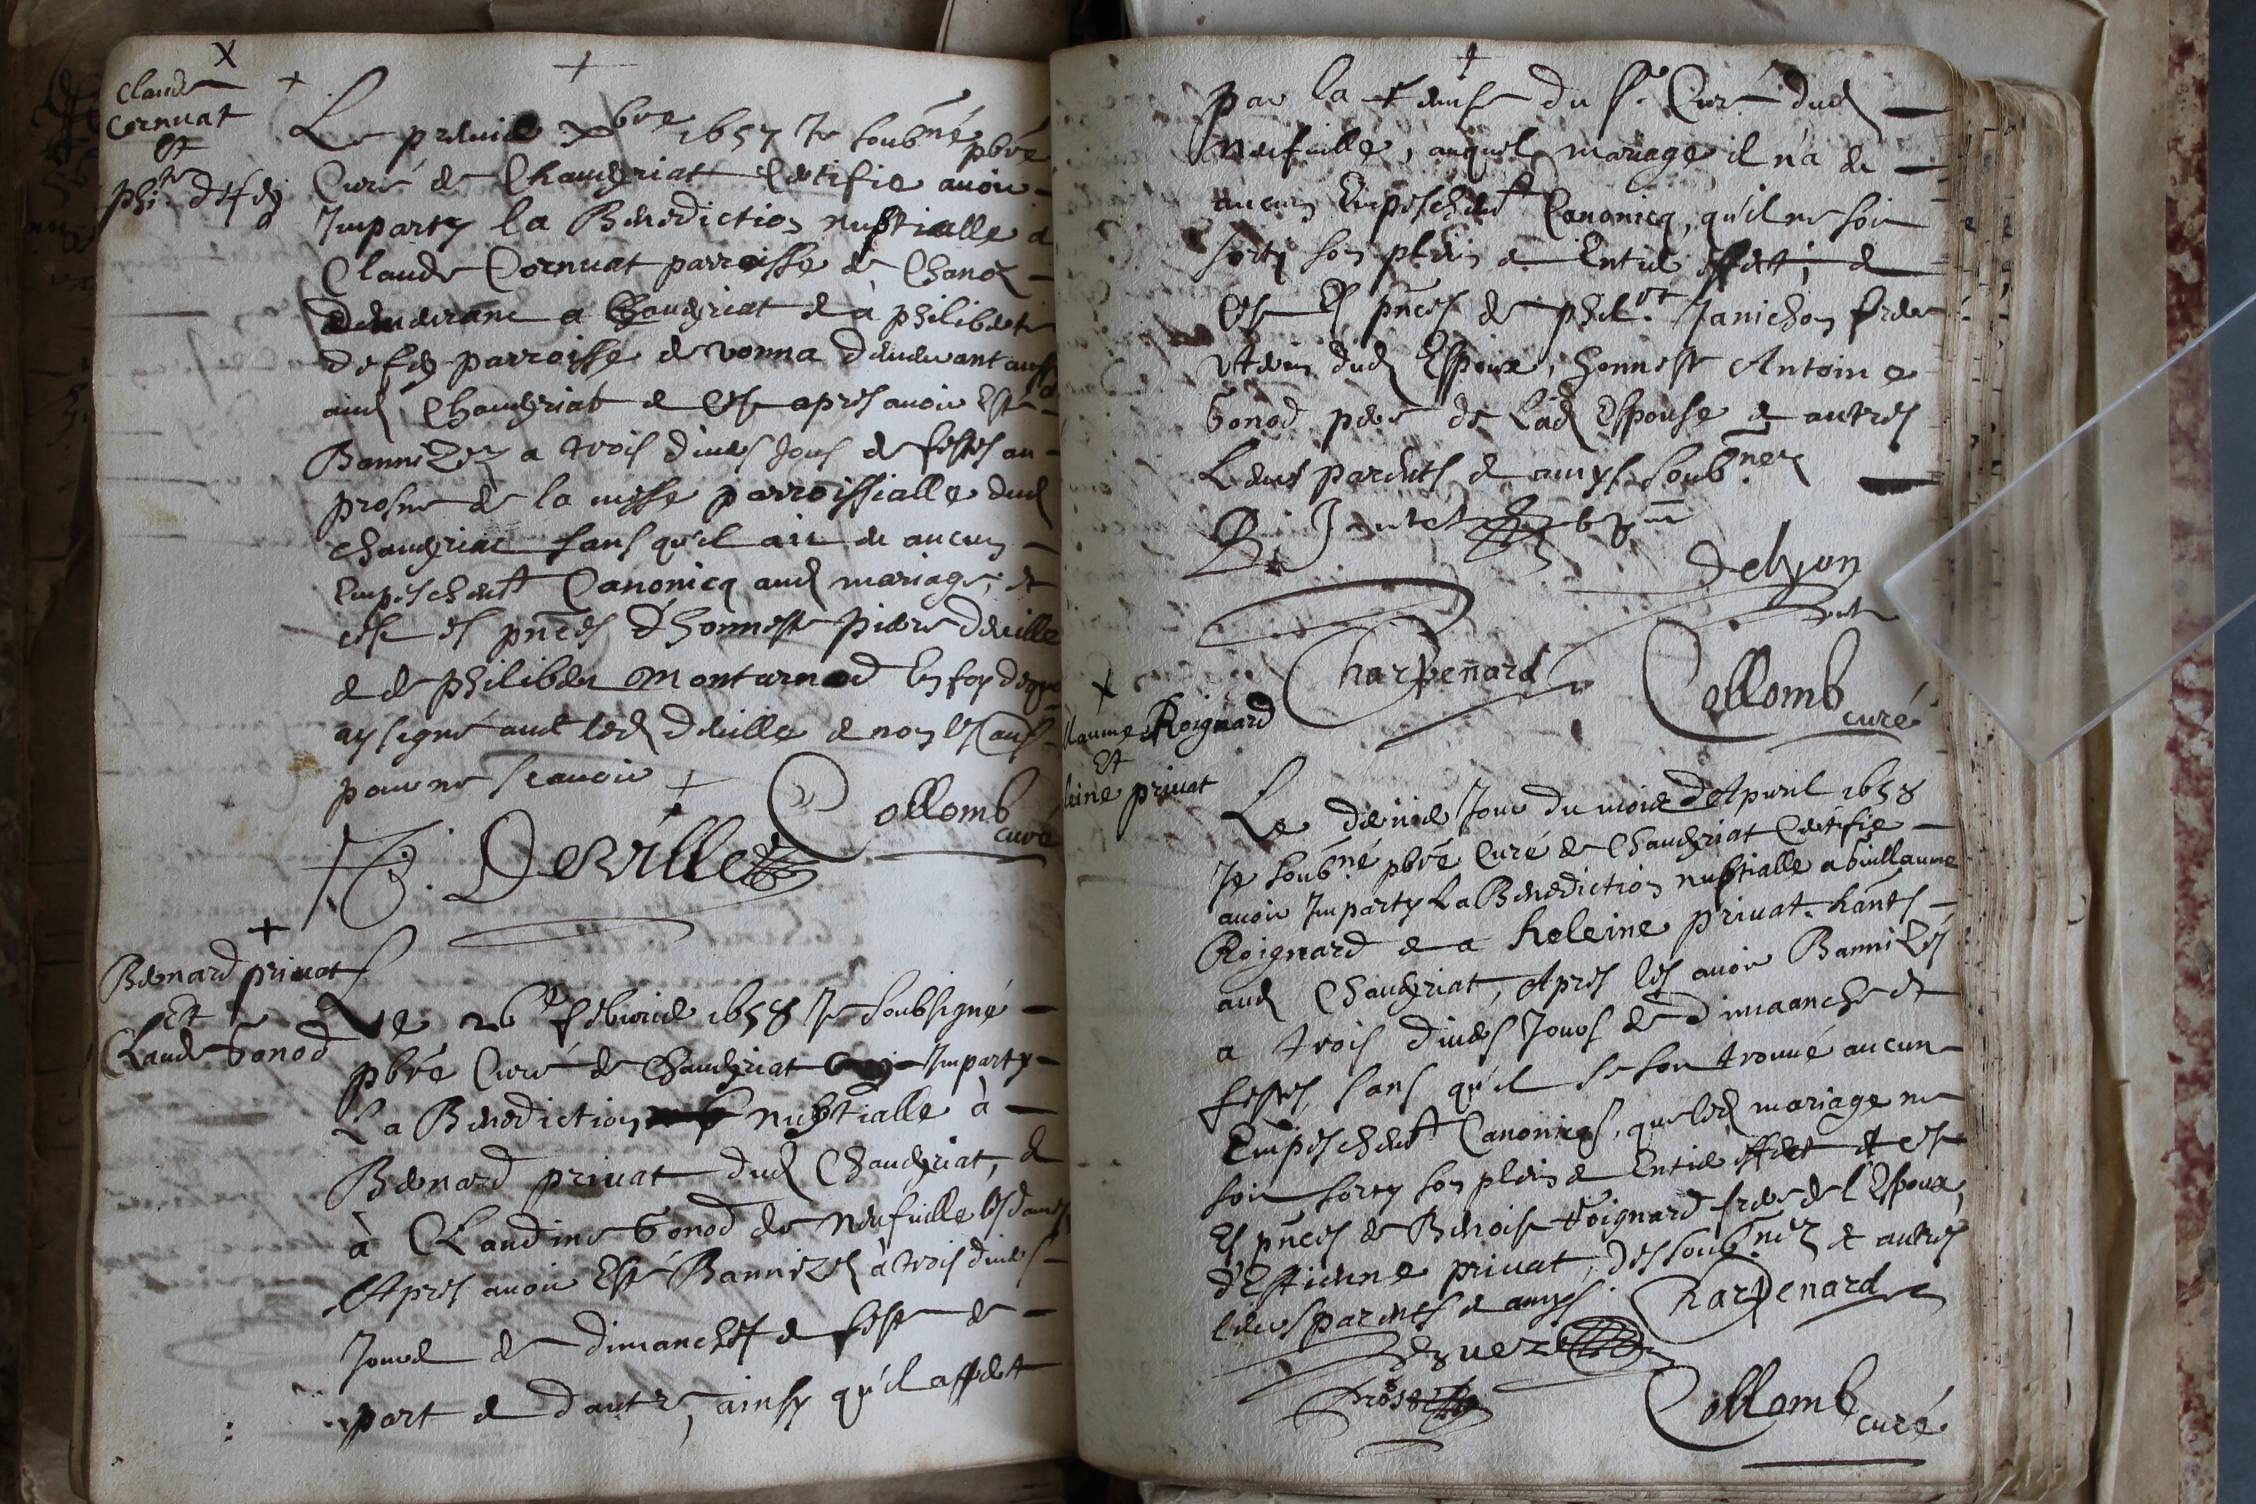 Claude
Cornuat
et
Le premier xbre 1657 Je soubné pbré
Curé de Chaveyriat Certifie avoir
Imparty la Benediction nuptialle a
Claude Cornuat parroisse de Chanoz
demeurant a Chaveyriat & à philiberte
parroisse de vonna demeurant aussy
aud Chaveyriat & Ce apres avoir Esté
Bannizez a trois divers Jours de festes au
prosne de la messe parroissialle dud
Chaveyriat sans qu'il aie de aucun
Empeschemt Canonicq aud mariage, et
ce es pnces d'honneste pierre deville
& de philibert Montarnod En foy dequoy
ay signé avec led deville & non les aus
pour ne scavoir
Collomb
curé
Deville
Bernard privat
Et
Claude Gonod
Le 26e febvrier 1658 Je soubsigné
pbré Curé de Chaveyriat Imparty
La Benediction nuptialle à
Bernard privat dud Chaveyriat, &
à Claudine Gonod de Neufville lesdames,
Apres avoir Esté Bannizes à trois divers
Jours de dimanches & feste de
part & d'autre, ainsy qu'il appert
par la du Sr Curé dud
Neufville, auquel mariage il n'a de
aucun Empeschemt Canonicq, qu'il ne soit
sorty son plein & Entier effect; &
Ce Es pnces de philt Janichon frere
uterin dud Espoux, honneste Antoine
Gonod pere de Lad Espouse & autres
Leurs parents & amys soubnez
Delyon
Charpenard
Collomb
curé
llaume Roignard
Et
leine privat
Le dernier Jour du mois d'Apvril 1658
Je soubné pbré Curé de Chaveyriat Certifie
avoir Imparty La Benediction nuptialle a Guillaume
Roignard & a heleine privat hants
aud Chaveyriat, Apres les avoir Bannizés
a trois divers Jours de dimaanche et
festes, sans qu'il se soit trouvé aucun
Empeschemt Canonicqs, que led mariage ne
soit sorty son plein & Entier effect & ce
Es pnces de Benoist Roignard frere de l'Espoux,
d'Estienne privat, des soubnez & autres
leurs parents & amys.
Charpenard
Collomb
curé